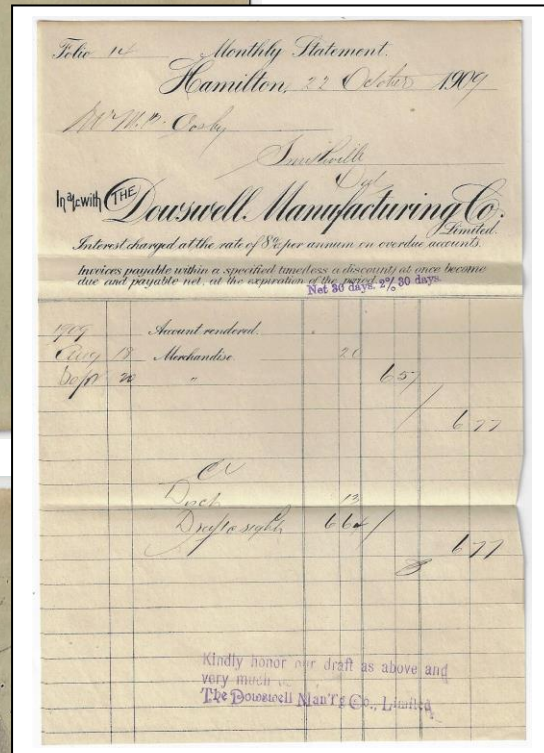 Folio 14 Monthly Statement.
Hamilton, 22 October 1909
Mr
Smithville
In a/c with THE Dowswell Manufacturing Co.
Limited.
Interest charged at the rate of 8% per annum on overdue accounts.
Invoices payable within a specified time (less a discount) at once become
due and payable net, at the expiration of the period.
Net 30 days. 2% 30 days.
1909 Account rendered.
Aug 18 Merchandise 20
20 " 6 57
6 77
Cr
13
Draft @ sight 6 64
6 77
Kindly honor our draft as above and
very much
The Dowswell Man'f'g Co., Limited